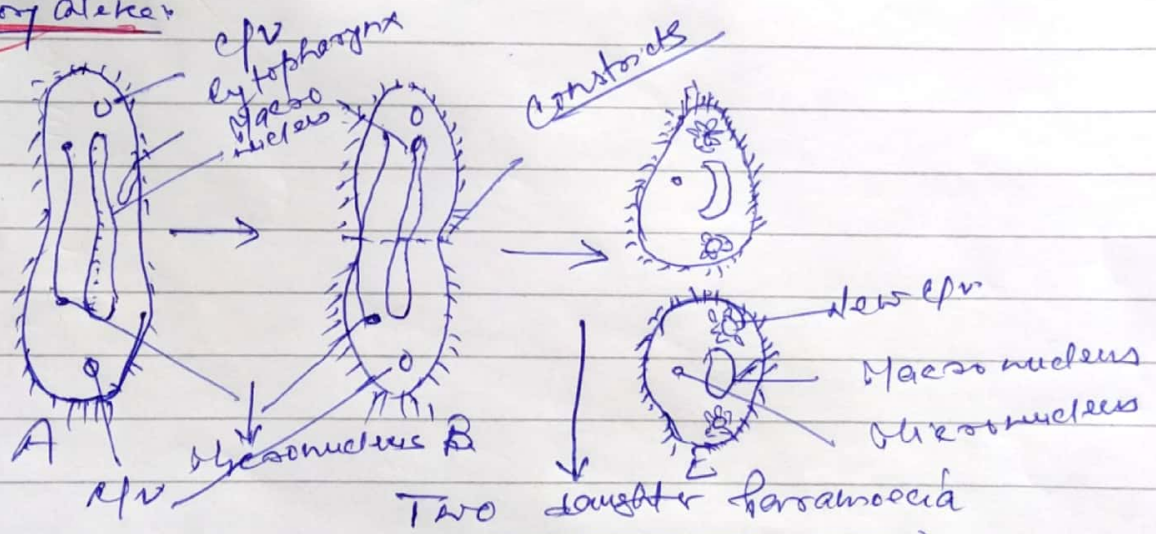 C/V
Cytopharynx
Macro
nucleus
Constricts
New C/V
Macronucleus
Micronucleus
A
Micronucleus B
C/V
E
Two daughter Paramoecia